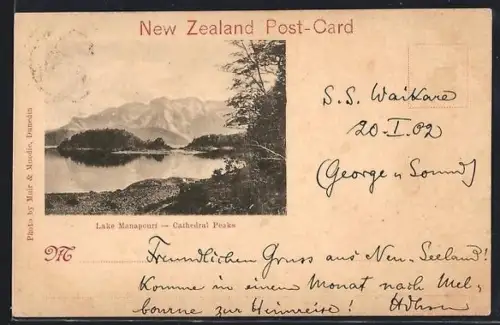 New Zealand Post-Card
S.S. Waikare
20-I.02
(George u Sound)
Photo by Muir & Moodie, Dunedin
Lake Manapouri — Cathedral Peaks
M
Freundlichen Gruss aus Neu-Seeland!
Komme in einem Monat nach Mel-
bourne zur Heimreise!